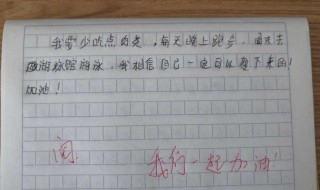 我要少吃点肉类，每天晚上跑步，周末去
游泳馆游泳，我相信自己一定可以瘦下来的！
加油！
阅 我们一起加油！